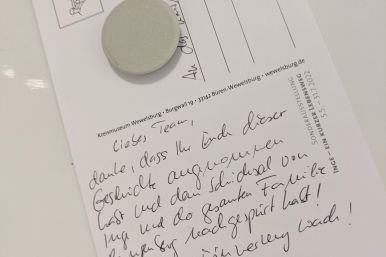 An das
Kreismuseum Wewelsburg • Burgwall 19 • 33142 Büren-Wewelsburg • www.wewelsburg.de
SONDERAUSSTELLUNG
5.5. – 31.7.2022
INGE – EIN KURZER LEBENSWEG
Liebes Team,
danke, dass Ihr Euch dieser
Geschichte angenommen
habt und dem Schicksal von
Inge und der gesamten Familie
nachgespürt habt!